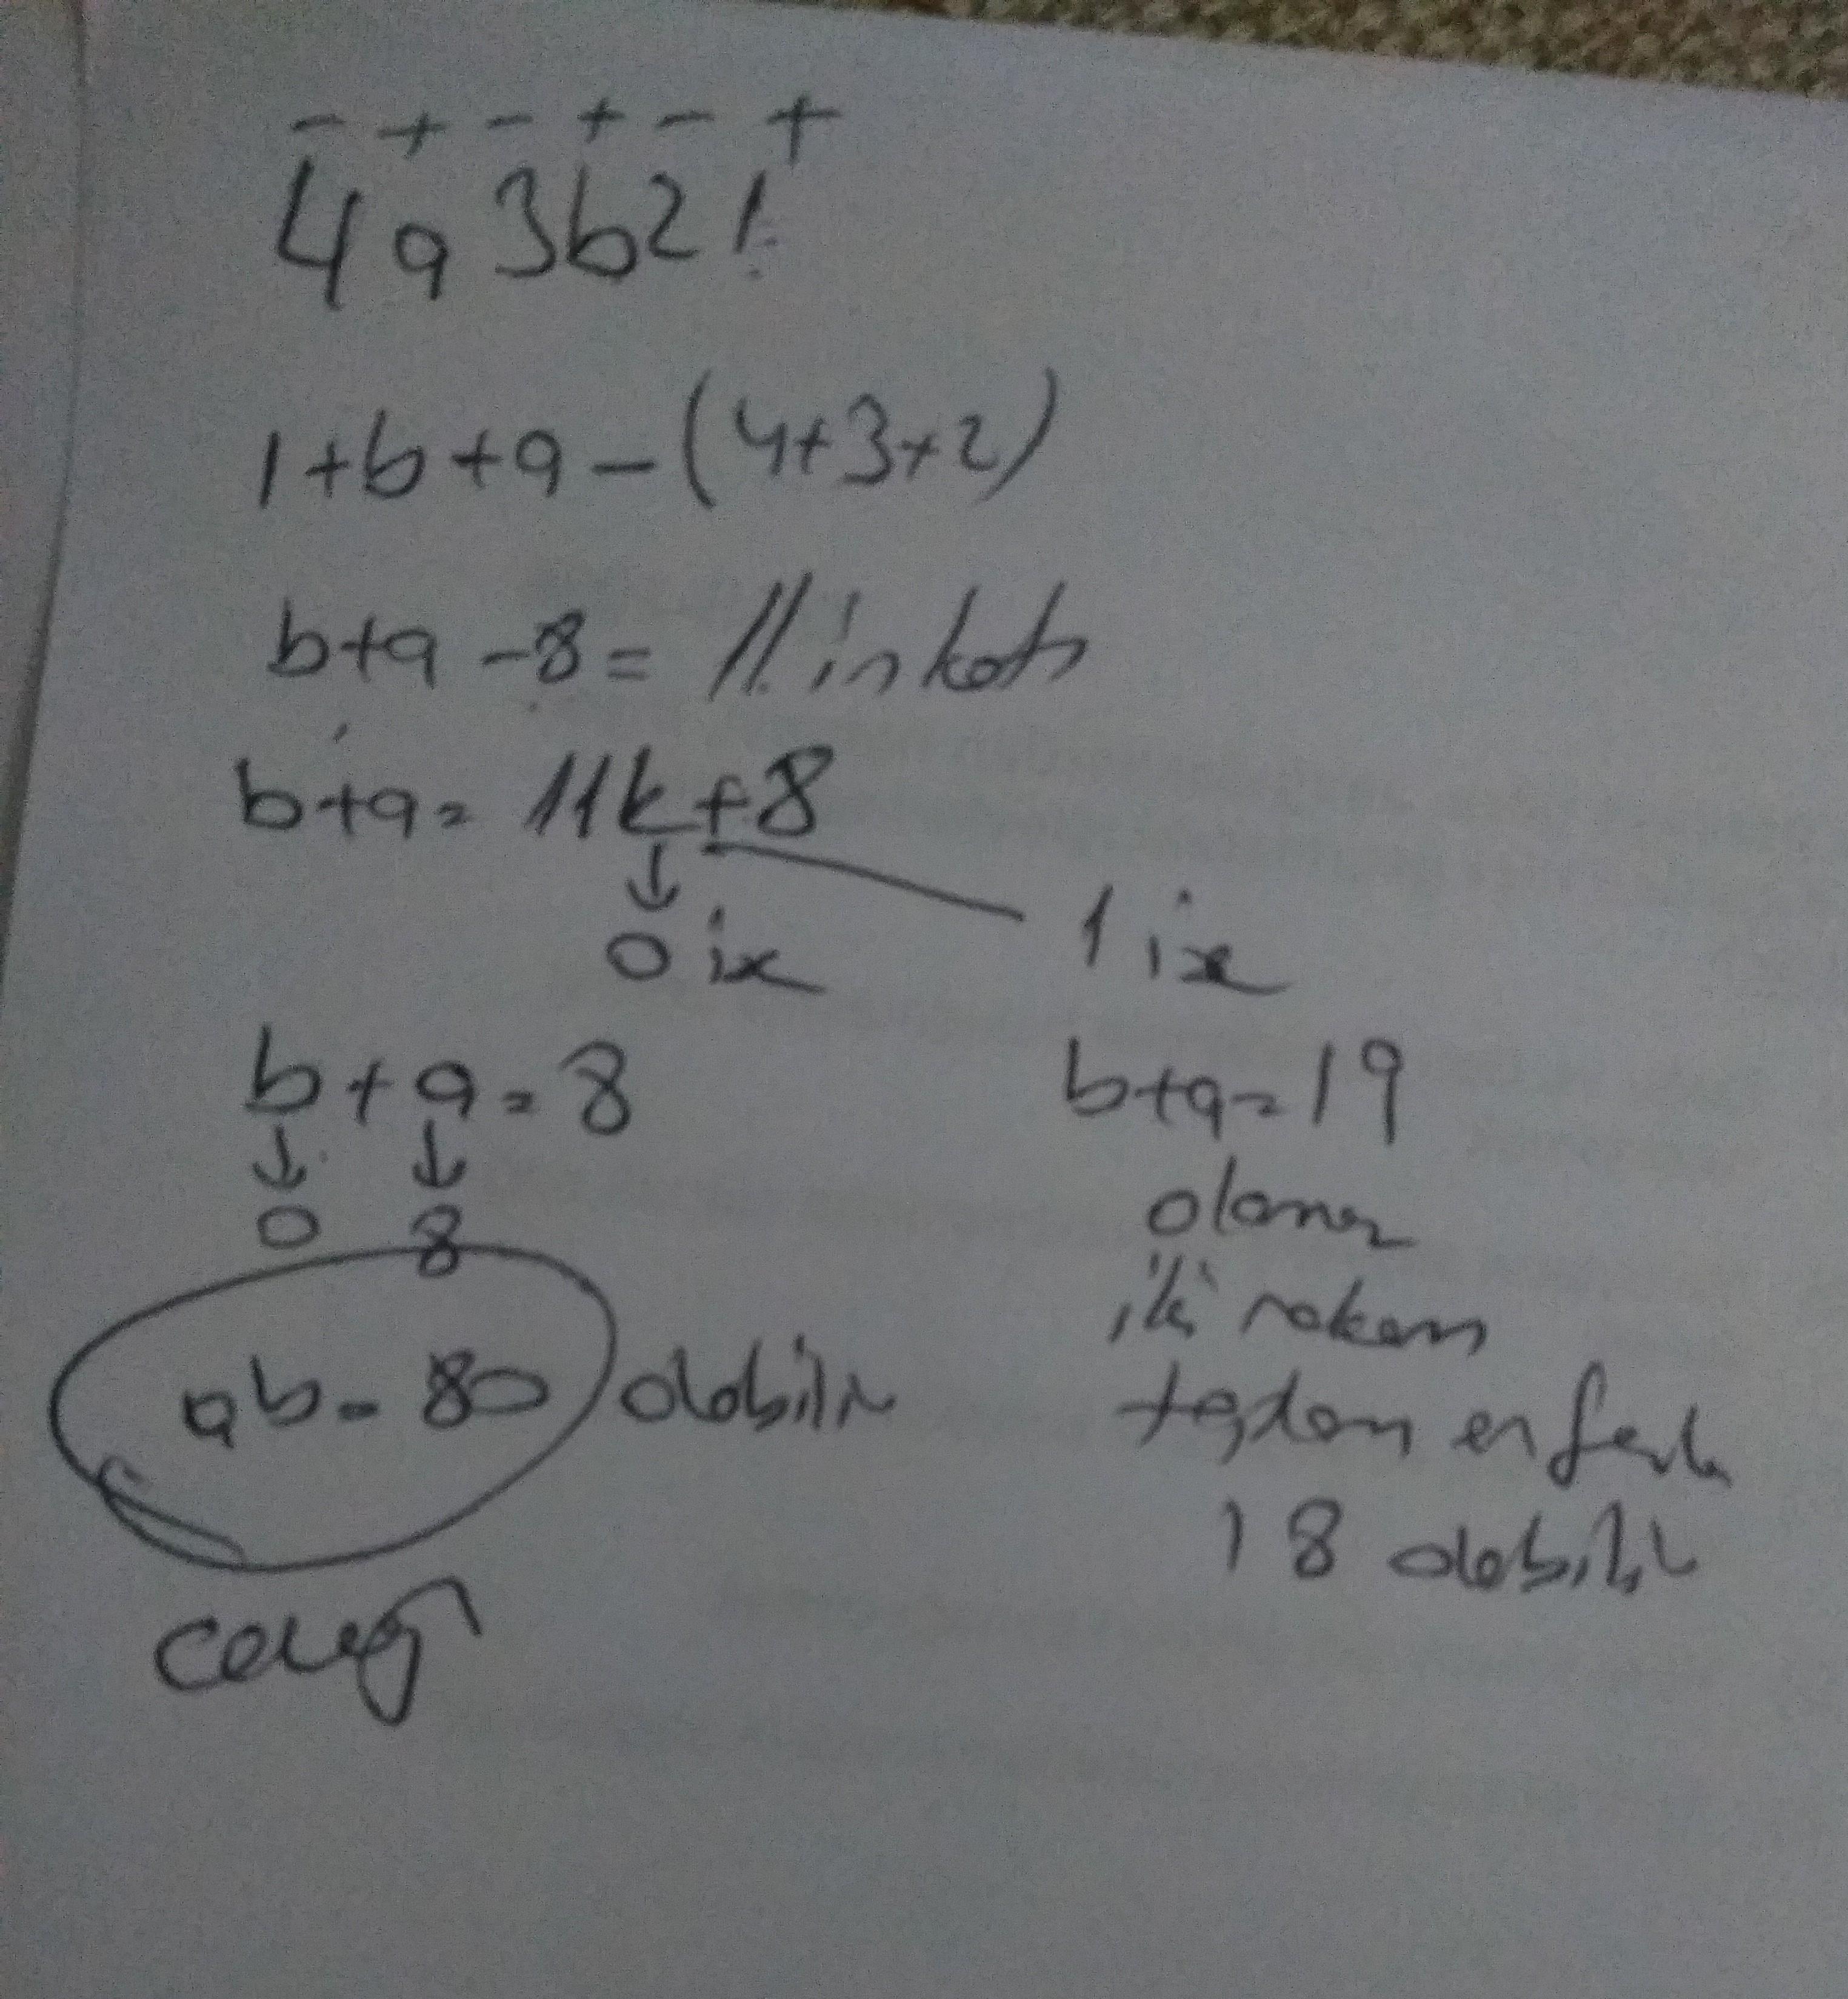 - + - + - +
4a3b21
1+b+a-(4+3+2)
b+a-8= 11in katı
b+a= 11k+8
↓
0 ix
1 ix
b+a=8
↓ ↓
0 8
ab=80 olabilir
cevap
b+a=19
olamaz
iki rakam
toplam en fazla
18 olabilir